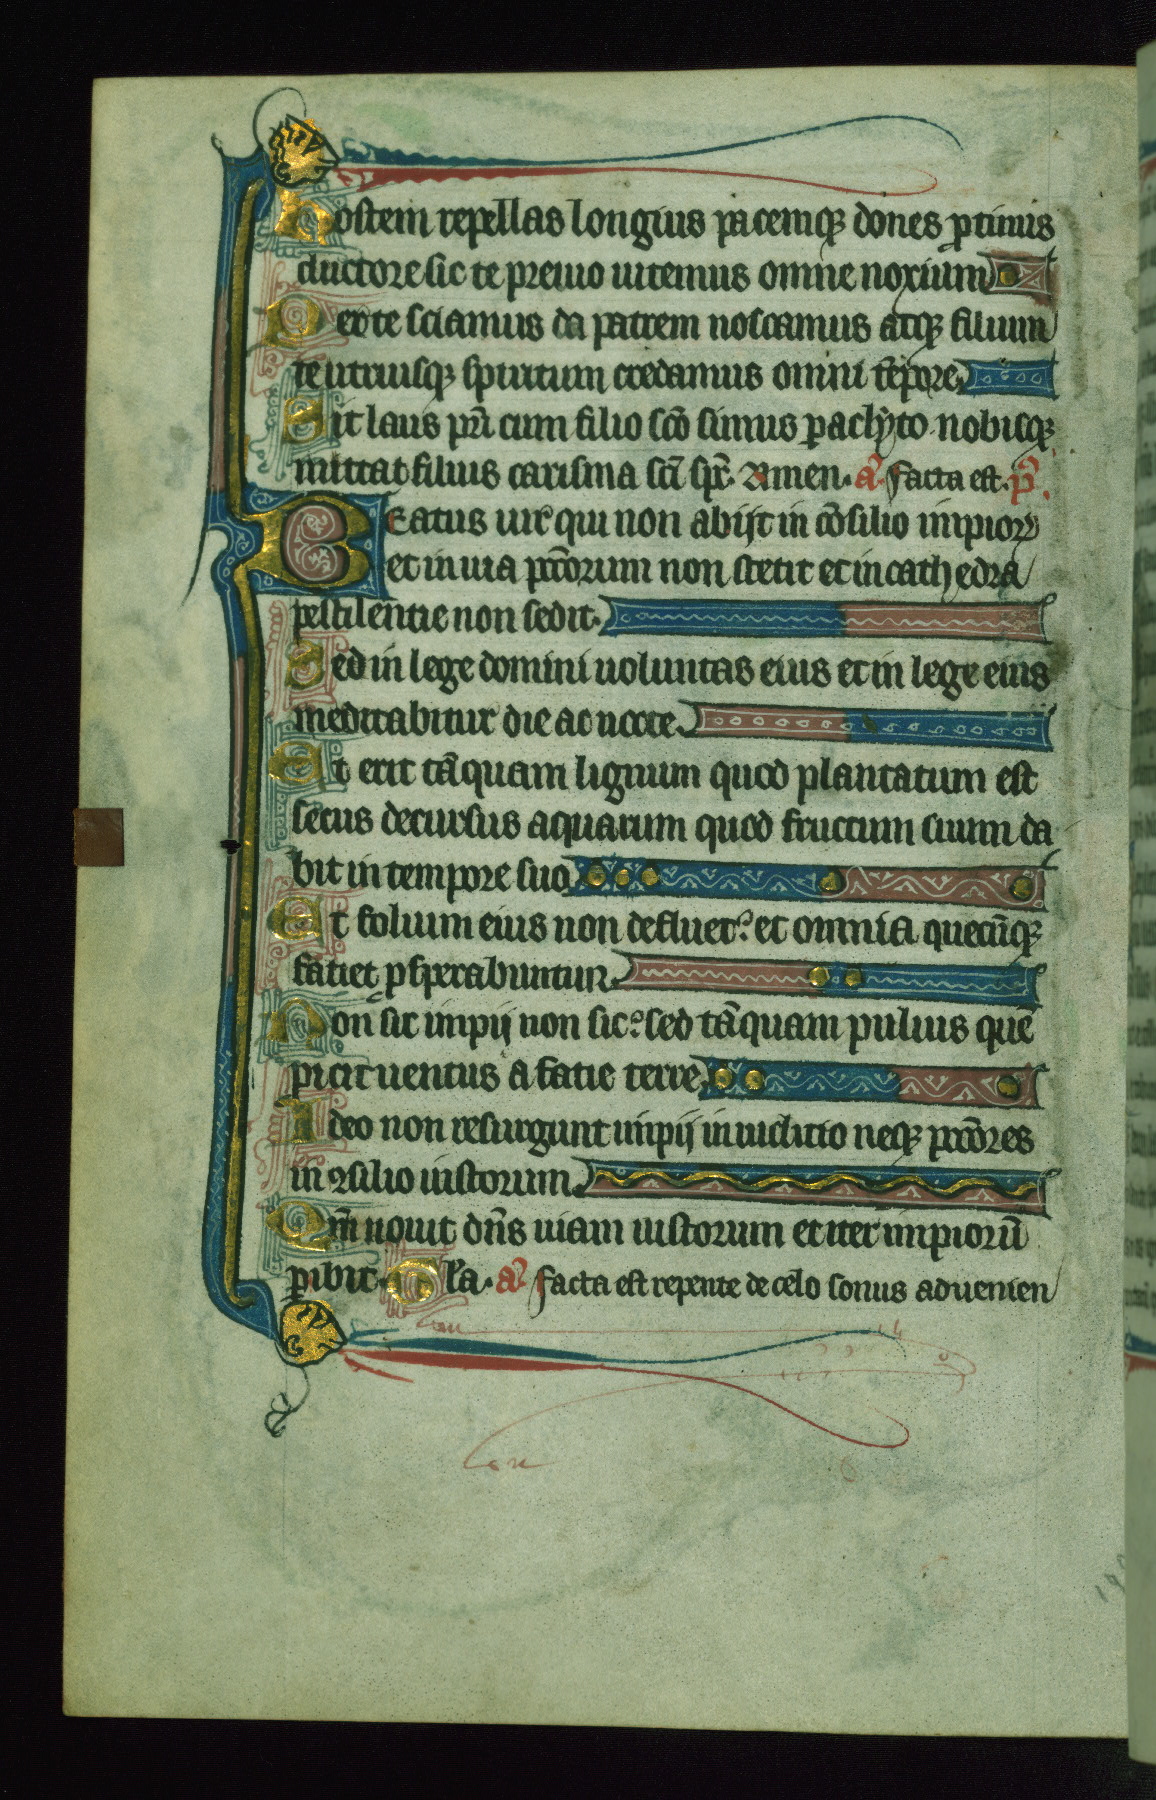 Hostem repellas longius pacemq; dones ꝓtinus
ductore sic te preuio uitemus omne noxium
Per te sciamus da patrem noscamus atq; filium
te utriusq; spiritum credamus omni tēpore.
Sit laus pr̄i cum filio sc̄o simus ꝑaclyto nobisq;
mittat filius carisma sc̄i sp̄c. Amen. a᷒. facta est. p᷒.
Beatus uir qui non abijt in cōsilio impioꝝ
et in uia pc̄c̄orum non stetit et in cathedra
pestilentie non sedit.
Sed in lege domini uoluntas eius et in lege eius
meditabitur die ac nocte.
Et erit tāquam lignum quod plantatum est
secus decursus aquarum quod fructum suum da
bit in tempore suo
Et folium eius non defluet: et omnia quecūq;
faciet ꝓsperabuntur.
Non sic impij non sic: sed tāquam puluis quē
picit uentus a facie terre.
Ideo non resurgunt impij in iudicio neq; pc̄c̄ores
in ꝯsilio iustorum.
Qm̄ nouit dn̄s uiam iustorum et iter impiorū
ꝑibit. Gl'a. a᷒. facta est repente de celo sonus aduenien